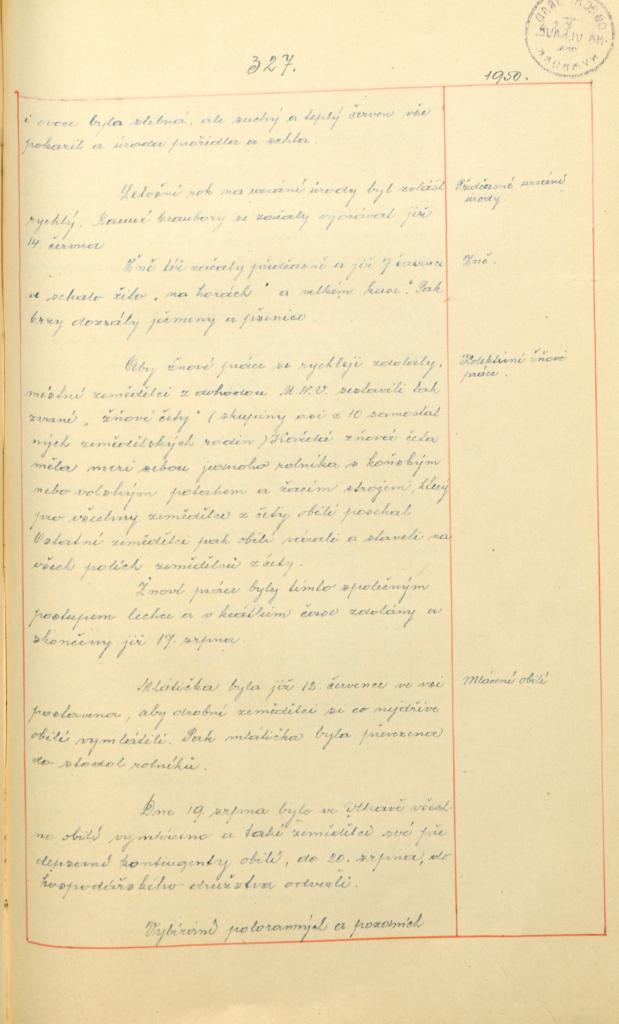 327.
1950.
i ovoce byla slibná, ale suchý a teplý červen vše
pokazil a úroda prořídla a schla.
Letošní rok na uzrání úrody byl zvlášť
rychlý. Ranné brambory se začaly vyorávat již
14. června
Předčasné uzrání
úrody.
Žně též začaly předčasně a již 7 července
se sekalo žito „na horách" a velkém kuse". Pak
brzy dozrály ječmeny a pšenice.
Žně.
Aby žňové práce se rychleji zdolaly,
místní zemědělci z dohodou M.N.V. sestavili tak
zvané „žňové čety" (skupiny asi z 10 samostat
ných zemědělských rodin) Každá žňová četa
měla mezi sebou jednoho rolníka s koňským
nebo volským potahem a žacím strojem, který
pro všechny zemědělce z čety obilí posekal.
Ostatní zemědělci pak obilí vázali a stavěli na
všech polích zemědělců z čety.
Kolektivní žňové
práce.
Žňové práce byly tímto společným
postupem lehce a v krátkém čase zdolány a
skončeny již 17. srpna.
Mlátička byla již 12. července ve vsi
postavena, aby drobní zemědělci si co nejdříve
obilí vymlátili. Pak mlátička byla převezena
do stodol rolníků.
Mlácení obilí
Dne 19. srpna bylo ve Vlkavě všech
no obilí vymláceno a také zemědělci své pře
depsané kontingenty obilí, do 20. srpna, do
hospodářského družstva odvezli.
Vybírání poloranných a pozdních